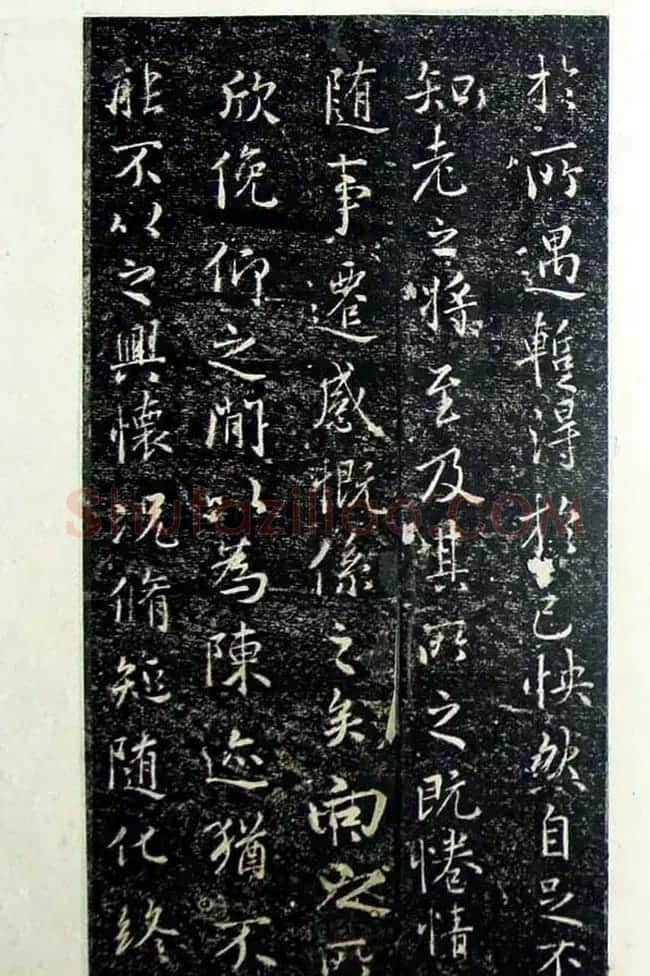 於所遇暫得於己怏然自足不
知老之將至及其所之既惓情
随事遷感慨係之矣向之所
欣俛仰之間以為陳迹猶不
能不以之興懷況脩短随化終
Shufaziliao.COM